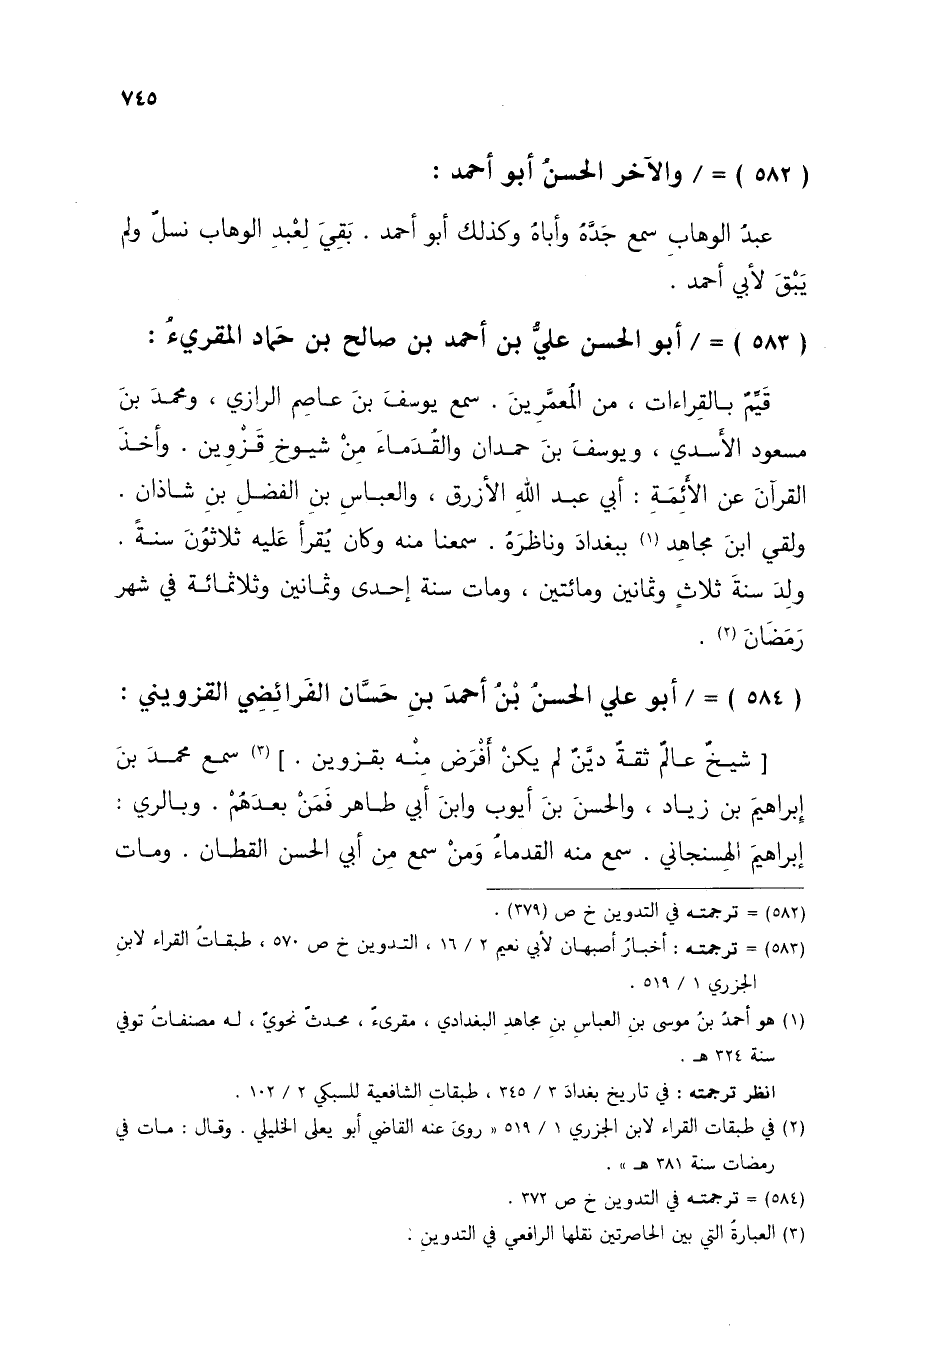 ٧٤٥
( ٥٨٢ ) = / والآخر الحسنُ أبو أحمد :
عبدُ الوهابِ سمع جَدَّهُ وأباهُ وكذلك أبو أحمد . بَقِيَ لِعَبْدِ الوهاب نسلٌ ولم
يَبْقَ لأبي أحمد .
( ٥٨٣ ) = / أبو الحسن عليُّ بن أحمد بن صالح بن حمَاد المقريءُ :
قَيِّمٌ بالقراءات ، من المُعمَّرينَ . سمع يوسفَ بنَ عاصمٍ الرازي ، ومحمدَ بنَ
مسعود الأَسدي ، ويوسفَ بنَ حمدان والقُدَماءَ مِنْ شيوخِ قَزْوين . وأخذَ
القرآنَ عن الأئمَةِ : أبي عبد اللهِ الأزرق ، والعباسِ بن الفضلِ بنِ شاذان .
ولقي ابنَ مجاهد (١) ببغدادَ وناظرَهُ . سمعنا منه وكان يُقرأ عَليه ثلاثوُنَ سنةً .
ولدَ سنةَ ثلاثٍ وثمانين ومائتين ، ومات سنة إحدى وثمانين وثلاثمائة في شهر
رَمَضَانَ (٢) .
( ٥٨٤ ) = / أبو علي الحسنُ بْنُ أحمدَ بنِ حَسَّان الفَرائضِي القزويني :
[ شيخٌ عالمٌ ثقةٌ ديَّنٌ لم يكنْ أَفْرَض مِنْه بقزوين . ] (٣) سمع محمدَ بنَ
إبراهيمَ بن زياد ، والحسنَ بنَ أيوب وابنَ أبي طاهر فَمَنْ بعدَهُمْ . وبالري :
إبراهيمَ الهِسنجاني . سمع منه القدماءُ وَمنْ سمع مِن أبي الحسن القطان . ومات
(٥٨٢) = ترجمته في التدوين خ ص (٣٧٩) .
(٥٨٣) = ترجمته : أخبارُ أصبهان لأبي نعيم ٢ / ١٦ ، التدوين خ ص ٥٧٠ ، طبقاتُ القراء لابنِ
الجزري ١ / ٥١٩ .
(١) هو أحمدُ بنُ موسى بنِ العباسِ بنِ مجاهدِ البغدادي ، مقرىءٌ ، محدثٌ نحويٌ ، له مصنفاتُ توفي
سنة ٣٢٤ هـ .
انظر ترجمته : في تاريخ بغدادَ ٣ / ٣٤٥ ، طبقاتِ الشافعية للسبكي ٢ / ١٠٢ .
(٢) في طبقات القراء لابن الجزري ١ / ٥١٩ « روىَ عنه القاضي أبو يعلى الخليلي . وقال : مات في
رمضات سنة ٣٨١ هـ » .
(٥٨٤) = ترجمته في التدوين خ ص ٣٧٢ .
(٣) العبارةُ التي بين الحاصرتين نقلها الرافعي في التدوينِ :